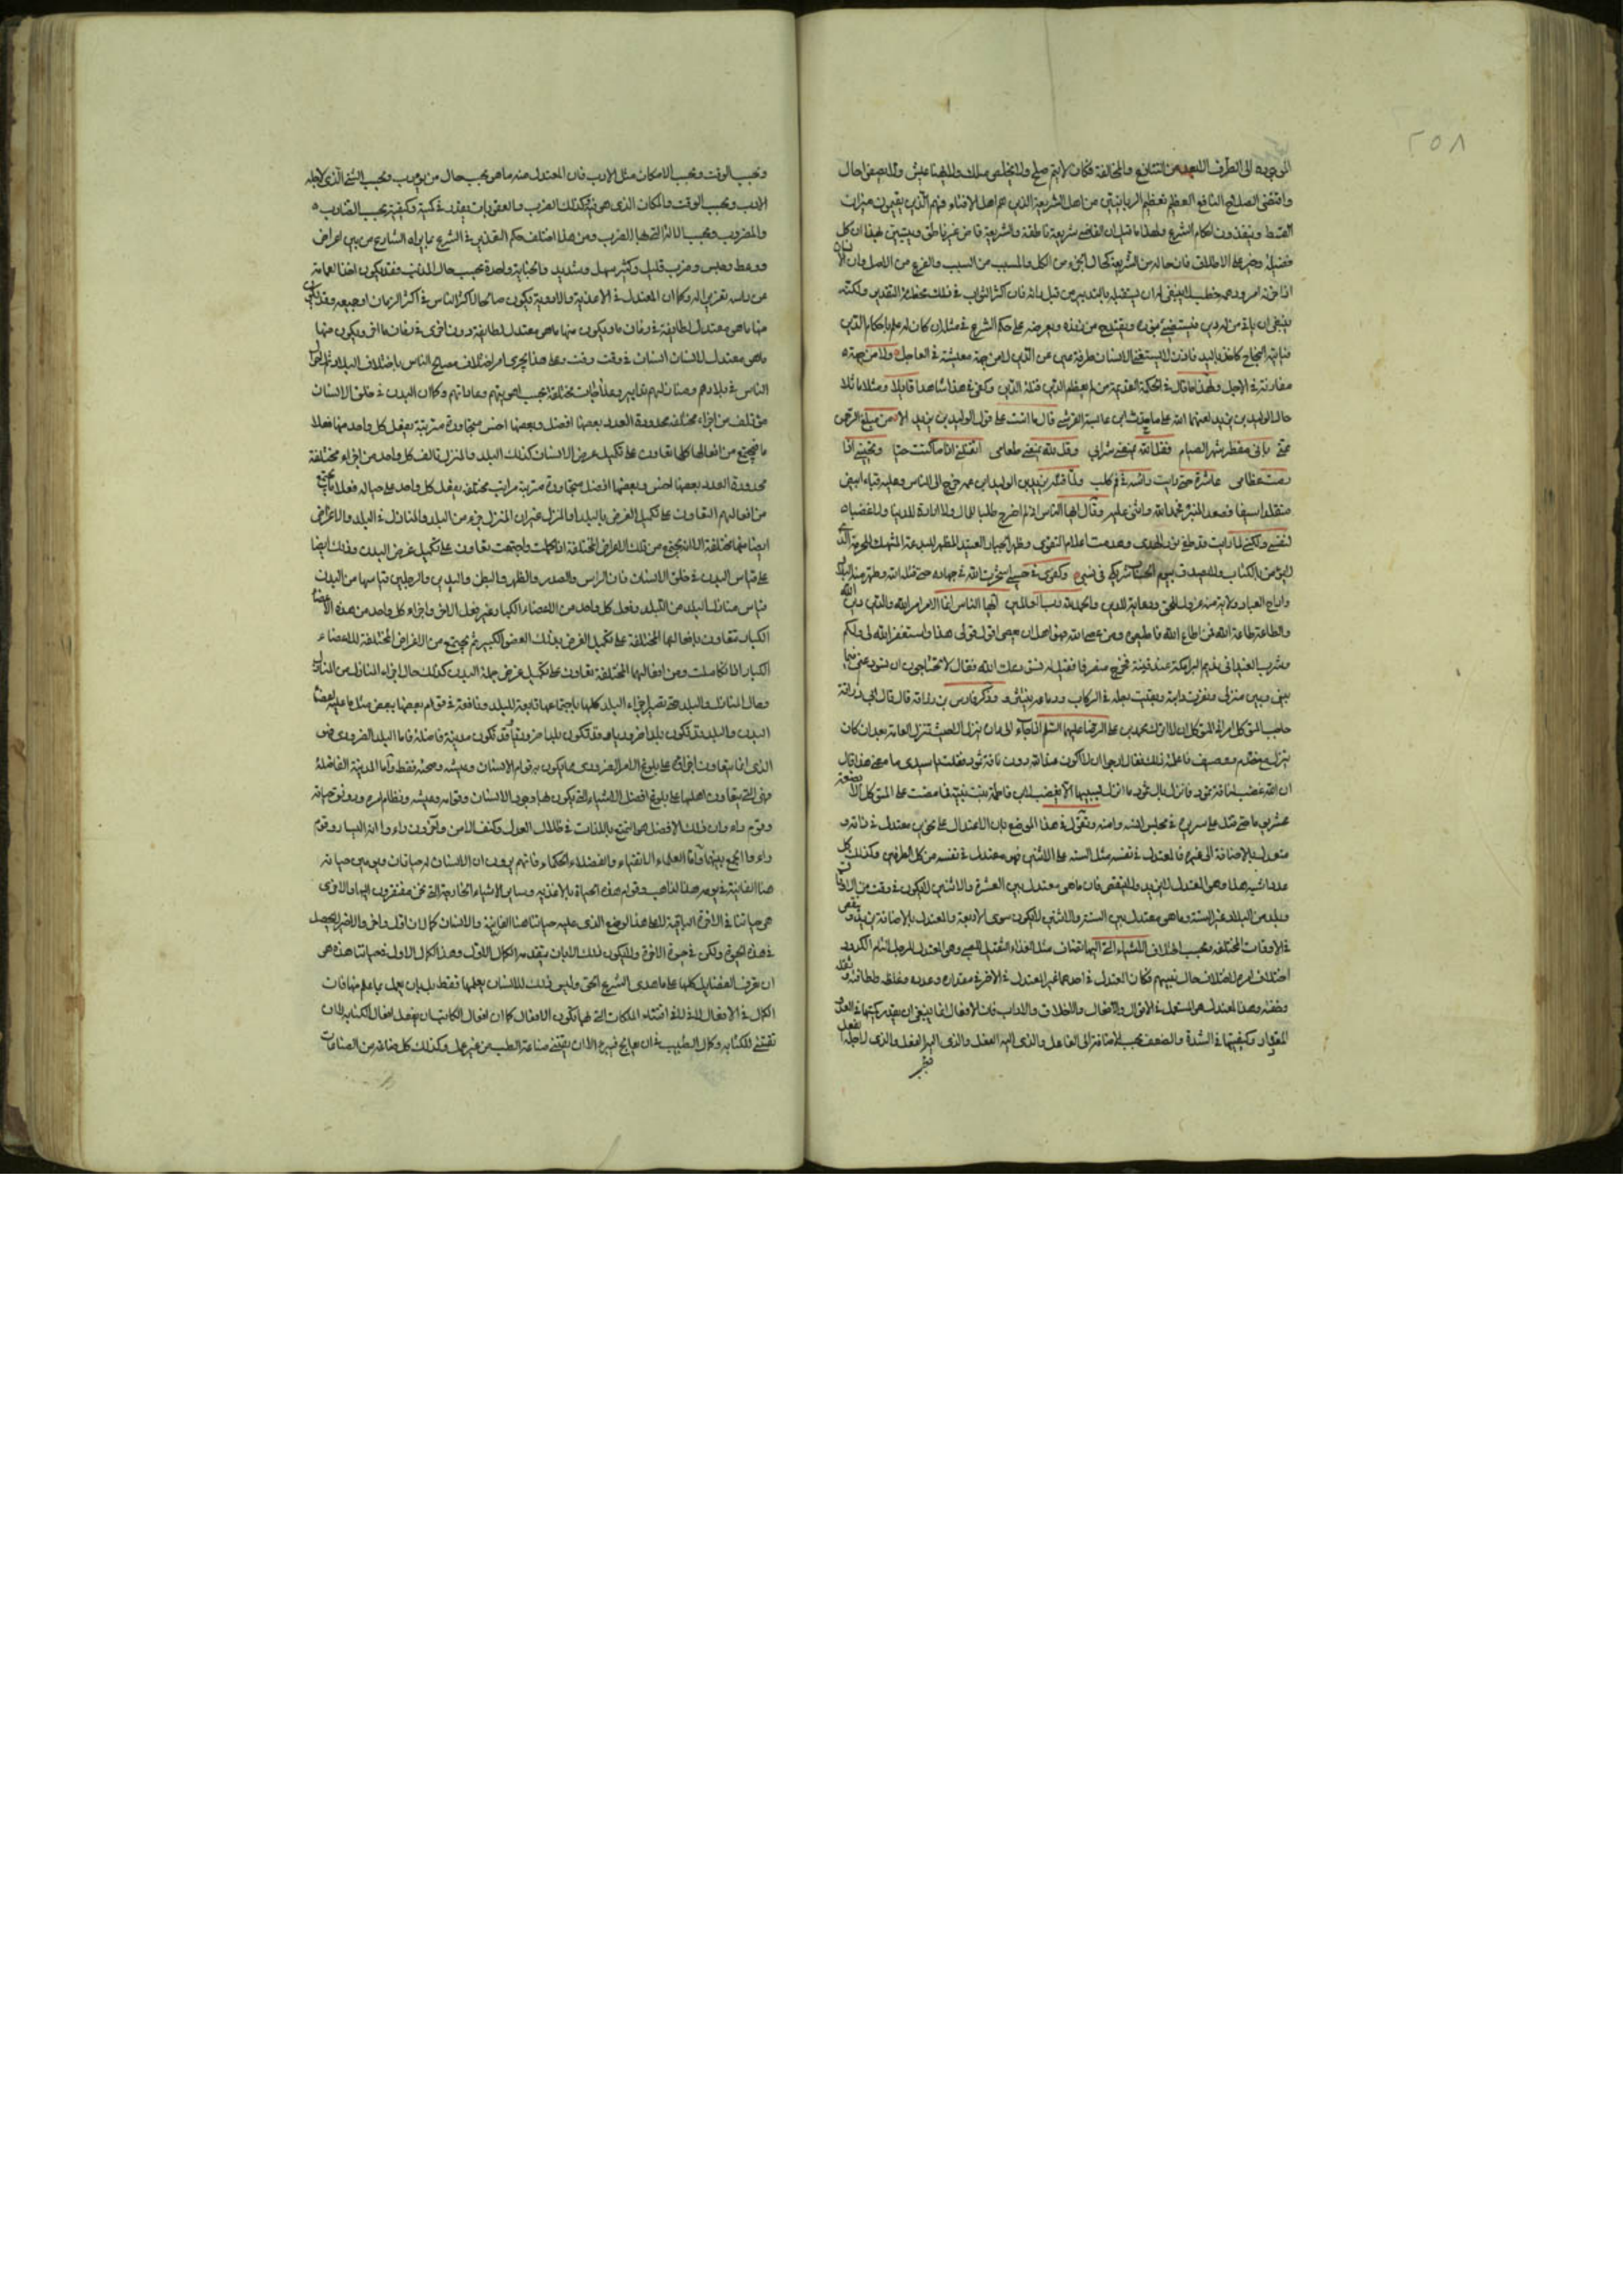 ٢٥٨
الموجودة الى الطرف الابعد من التنازع والمخالفة فكان لا يتم صلح ولا يخلص ملك ولا يهنأ عيش ولا يصفو حال
واقتضى الصلاح النافع العظيم تعظيم الربانيين من اهل الشريعة الذين هم اهل الافتاء فهم الذين يقيمون ميزان
القسط وينفذون احكام الشرع ولهذا ما قيل ان القاضي شريعة ناطقة والشريعة قاض غير ناطق ويتبين بهذا ان كل
فضيلة وخير على الاطلاق فان حاله من الشريعة كحال الجزء من الكل والمسبب من السبب والفرع من الاصل وان الانسان
اذا حزبه امر ودهمه خطب لا ينبغي له ان يستقبله بالتدبير من قبل ذاته فان اكثر النواب في ذلك مخطئة التقدير ولكنه
ينبغي ان يأتي من له دين فيستضئ بنوره ويقتدح من زنده ويعرضه على حكم الشرع في مثله ان كان له علم باحكام الدين
فنابته النجاح كأخذ باليد فاذن لا يستغني الانسان طرفة عين عن الدين لا من جهة معيشته في العاجل ولا من جهة
مفازته في الآجل ولهذا ما قال في الحكمة القديمة من لم يعظم الدين قتله الدين وكفى في هذا شاهدا قايلا ومثلا ماثلا
حال الوليد بن يزيد لعنهما الله على ما حدث ابن عايشة القرشي قال ما انت على قول الوليد بن يزيد الا من مبلغ الرحمن
عني باني مفطر شهر الصيام فقل لله يمنعني شرابي وقل لله يمنعني طعامي اتقتلني اذا ما كنت حيا وتحييني اذا
رمت عظامي عاشرة حتى رايت راسه في فم كلب ولما قتله يزيد بن الوليد ابن عمه خرج الى الناس وعليه قباء ابيض
متقلدا سيفا فصعد المنبر فحمد الله واثنى عليه وقال ايها الناس اني لم اخرج طلبا للمال ولا ارادة للدنيا ولا غضبا
لنفسي ولكني لما رايت قد طفئ نور الهدى وهدمت اعلام التقوى وظهر الجبار العنيد المظهر للبدعة المنتهك للحرمة الذي
لا يؤمن بالكتاب ولا يصدق بيوم الحساب شريكي في نسبي وكفوي في حسبي استخرت الله في جهاده حتى قتله الله وطهر منه البلاد
واراح العباد ولاية منه عز وجل للحق ورعاية للدين والحمد لله رب العالمين ايها الناس انما الامر امر الله والدين دين الله
والطاعة طاعة الله فمن اطاع الله فاطيعوه ومن عصى الله فهو اهل ان يعصى اقول قولي هذا واستغفر الله لي ولكم
بيني وبين منزلي ونفرت دابته وبقيت رجله في الركاب وذكر فارس بن زرافة قال قال ابي زرافة
عشرين يوما حتى قتل على سريره في مجلس انسه وامنه ونقول في هذا الموضع بان الاعتدال على نحوين معتدل في ذاته و
معتدل بالاضافة الى غيره فالمعتدل في نفسه مثل الستة على الاثنين فهو معتدل في نفسه من كل الطرفين وكذلك كل
عدد اشبه هذا وهو المعتدل لا يزيد ولا ينقص فان ما هو معتدل بين العشرة والاثنين لا يكون في وقت من الاوقات
وبلد من البلاد غير الستة وما هو معتدل بين الستة والاثنين لا يكون سوى الاربعة والمعتدل بالاضافة يزيد وينقص
في الاوقات المختلفة وبحسب اختلاف الاشياء التي اليها تضاف مثل الغذاء المعتدل للصبي وهو المعتدل للرجل التام الكدود
اختلف امره لاختلاف حال نسبهم فكان المعتدل في احدهما غير المعتدل في الآخر في مقداره وعدده وغلظه ولطافته وثقله
وخفته وهذا المعتدل هو المستعمل في الاقوال والافعال والاخلاق والآداب فان الافعال انما ينبغي ان يقدر كميتها في العدد
المقدار وكيفيتها في الشدة والضعف بحسب الاضافة الى الفاعل والذي اليه الفعل والذي لاجله الفعل
وبحسب الوقت وبحسب الامكان مثل الادب فان المعتدل منه ما هو بحسب حال من يؤدب وبحسب الشئ الذي لاجله
الادب وبحسب الوقت والمكان الذي هو فيه وكذلك الضرب والعقوبات يقدر في كمية وكيفية بحسب الضارب
والمضروب وبحسب الآلة التي بها الضرب ومن هذا اختلف حكم التعذيب في الشرع بما يراه الشارع من بين اعراض
ووعظ وحبس وضرب قليل وكثير سهل وشديد والجناية واحدة بحسب حال المذنب وفقد يكون اخذ العمامة
عن راسه تعزير له وكما ان المعتدل في الاغذية والادوية يكون صالحا لاكثر الناس في اكثر الزمان او جميعه وقد يكون
منها ما هو معتدل لطائفة في زمان ما ويكون منها ما هو معتدل لطايفة دون اخرى في زمان ما اخر ويكون منها
ما هو معتدل لانسان انسان في وقت وقت وعلى هذا يجري امر اختلاف مصالح الناس باختلاف البلاد
الناس في بلادهم وصار لهم تدابير وعلاجات مختلفة بحسب اهويتهم وعاداتهم وكما ان البدن في خلق الانسان
مؤتلف من اجزاء مختلفة محدودة العدد بعضها افضل وبعضها اخس متجاورة مترتبة يفعل كل واحد منها فعلا
ما فيجتمع من افعالها كلها تعاون على تكميل غرض الانسان كذلك البلد والمنزل تالف كل واحد من اجزاء مختلفة
محدودة العدد بعضها اخس وبعضها افضل متجاورة مترتبة مراتب مختلفة يفعل كل واحد على حياله فعلا ما يجتمع
من افعالهم التعاون على تكميل الغرض بالبلد او المنزل غير ان المنزل جزء من البلد والمنازل في البلد والاغراض
ايضا منها مختلفة الا انه يجتمع من تلك الاغراض المختلفة اذا كملت واجتمعت تعاون على تكميل غرض البلد وذلك ايضا
على قياس البدن في خلق الانسان فان الراس والصدر والظهر والبطن واليدين والرجلين قياسها من البدن
قياس منازل البلد من البلد وفعل كل واحد من الاعضاء الكبار غير فعل الآخر واجزاء كل واحد من هذه الاعضاء
الكبار تتعاون بافعالها المختلفة على تكميل الغرض بذلك العضو الكبير ثم يجتمع من الاغراض المختلفة للاعضاء
الكبار اذا تكاملت ومن افعالها المختلفة تعاون على تكميل غرض جملة البدن كذلك حال اجزاء المنازل من المنازل
وحال المنازل والبلد حتى تصير اجزاء البلد كلها باجتماعها نافعة للبلد ونافعة في قوام بعضها ببعض مثل ما عليه اعضاء
البدن والبلد قد تكون بلدا ضروريا وقد تكون مدينة فاضلة فاما البلد الضروري فهو
الذي انما يتعاون اجزاؤه على بلوغ الامر الضروري مما يكون به قوام الانسان وعيشه وصحته فقط واما المدينة الفاضلة
فهي التي يتعاون اهلها على بلوغ افضل الاشياء التي يكون بها وجود الانسان وقوامه وعيشه ونظام امره ورونق حياته
وقوم راءوا ان ذلك الافضل هو التمتع باللذات في ظلال العدل وكنف الامن وآخرون راءوا انه اليسار وقوم
راءوا الجمع بينهما واما العلماء الاتقياء والفضلاء الحكماء فانهم يرون ان الانسان له حياتان
هي حياتنا في الآخرة الباقية لا على هذا الوضع الذي عليه حياتنا هذا الفانية وللانسان كمالان اول واخر والاخير لا يحصل
في هذه الحيوة ولكن في حيوة الآخرة ولا يكون ذلك الا بان يتقدمه الكمال الاول وهذا الكمال الاول في حياتنا هذه هو
ان يعرف الفضايل كلها على ما هدى الشرع الحق وليس ذلك للانسان بعلمها فقط بل بان يعمل بما علم منها فان
الكمال في الافعال لا في اقتناء الملكات التي بها تكون الافعال كما ان افعال الكاتب ان يفعل افعال الكتابة لا ان
تقتني الكتابة وكمال الطبيب في ان يعالج غيره لا ان يقتني صناعة الطب من غير عمل وكذلك كل صناعة من الصناعات